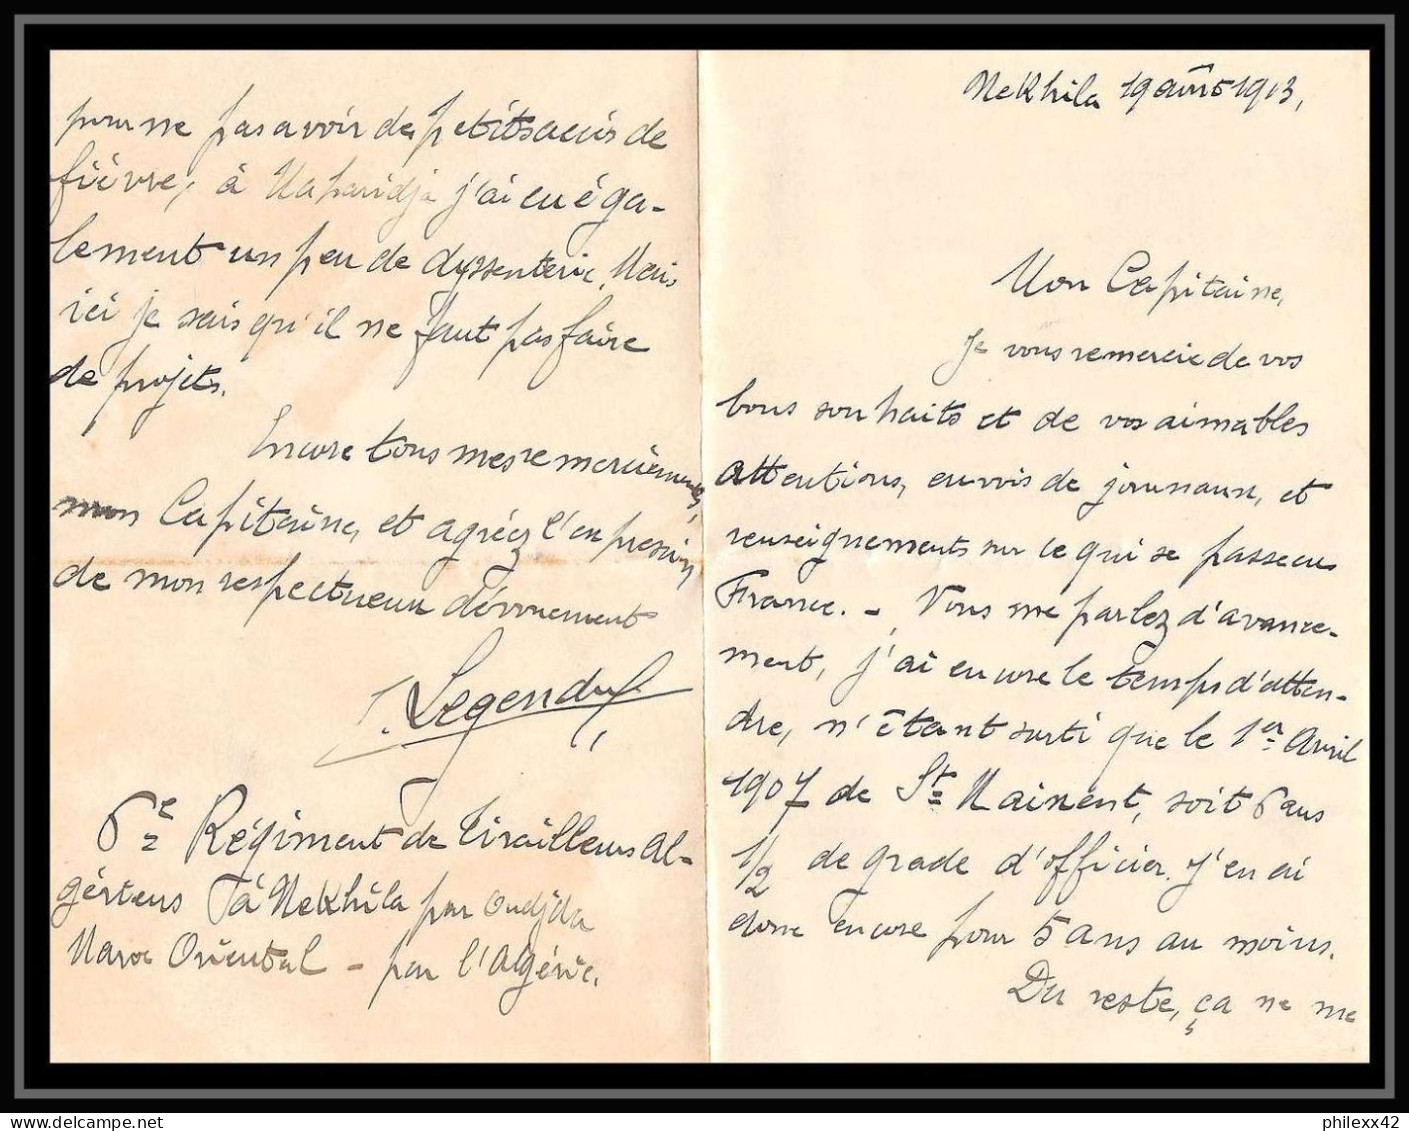 Nekhila 19 août 1913,
Mon Capitaine,
Je vous remercie de vos
bons souhaits et de vos aimables
attentions, envois de journaux, et
renseignements sur ce qui se passe en
France. – Vous me parlez d'avance-
ment, j'ai encore le temps d'atten-
dre, n'étant sorti que le 1er Avril
1907 de St Maixent, soit 6 ans
1/2 de grade d'officier. J'en ai
donc encore pour 5 ans au moins.
Du reste, ça ne me
pour ne pas avoir de petits accès de
fièvre, à j'ai eu éga-
lement un peu de dyssenterie. Mais
ici je sais qu'il ne faut pas faire
de projets.
Encore tous mes remerciements,
mon Capitaine, et agréez l'expression
de mon respectueux dévouement
Legendre
6e Régiment de Tirailleurs Al-
gériens à Nekhila par Oudjda
Maroc Oriental – par l'Algérie.
philexx42